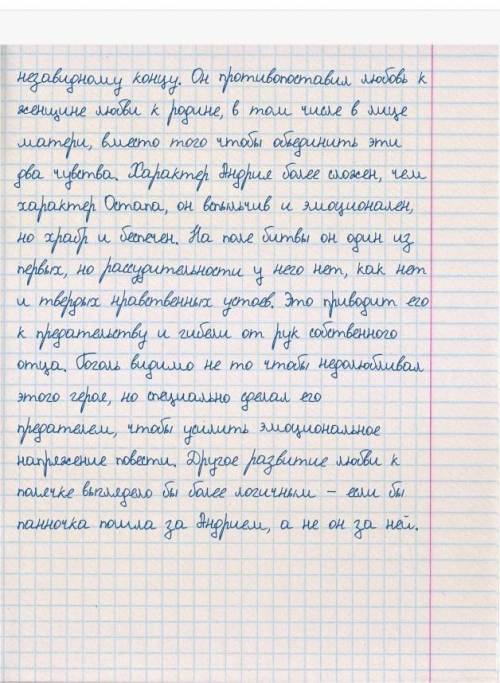 незавидному концу. Он противопоставил любовь к
женщине любви к родине, в том числе в лице
матери, вместо того чтобы объединить эти
два чувства. Характер Андрия более сложен, чем
характер Остапа, он вспыльчив и эмоционален,
но храбр и беспечен. На поле битвы он один из
первых, но рассудительности у него нет, как нет
и твердых нравственных устоев. Это приводит его
к предательству и гибели от рук собственного
отца. Гоголь видимо не то чтобы недолюбливал
этого героя, но специально сделал его
предателем, чтобы усилить эмоциональное
напряжение повести. Другое развитие любви к
полячке выглядело бы более логичным – если бы
панночка пошла за Андрием, а не он за ней.